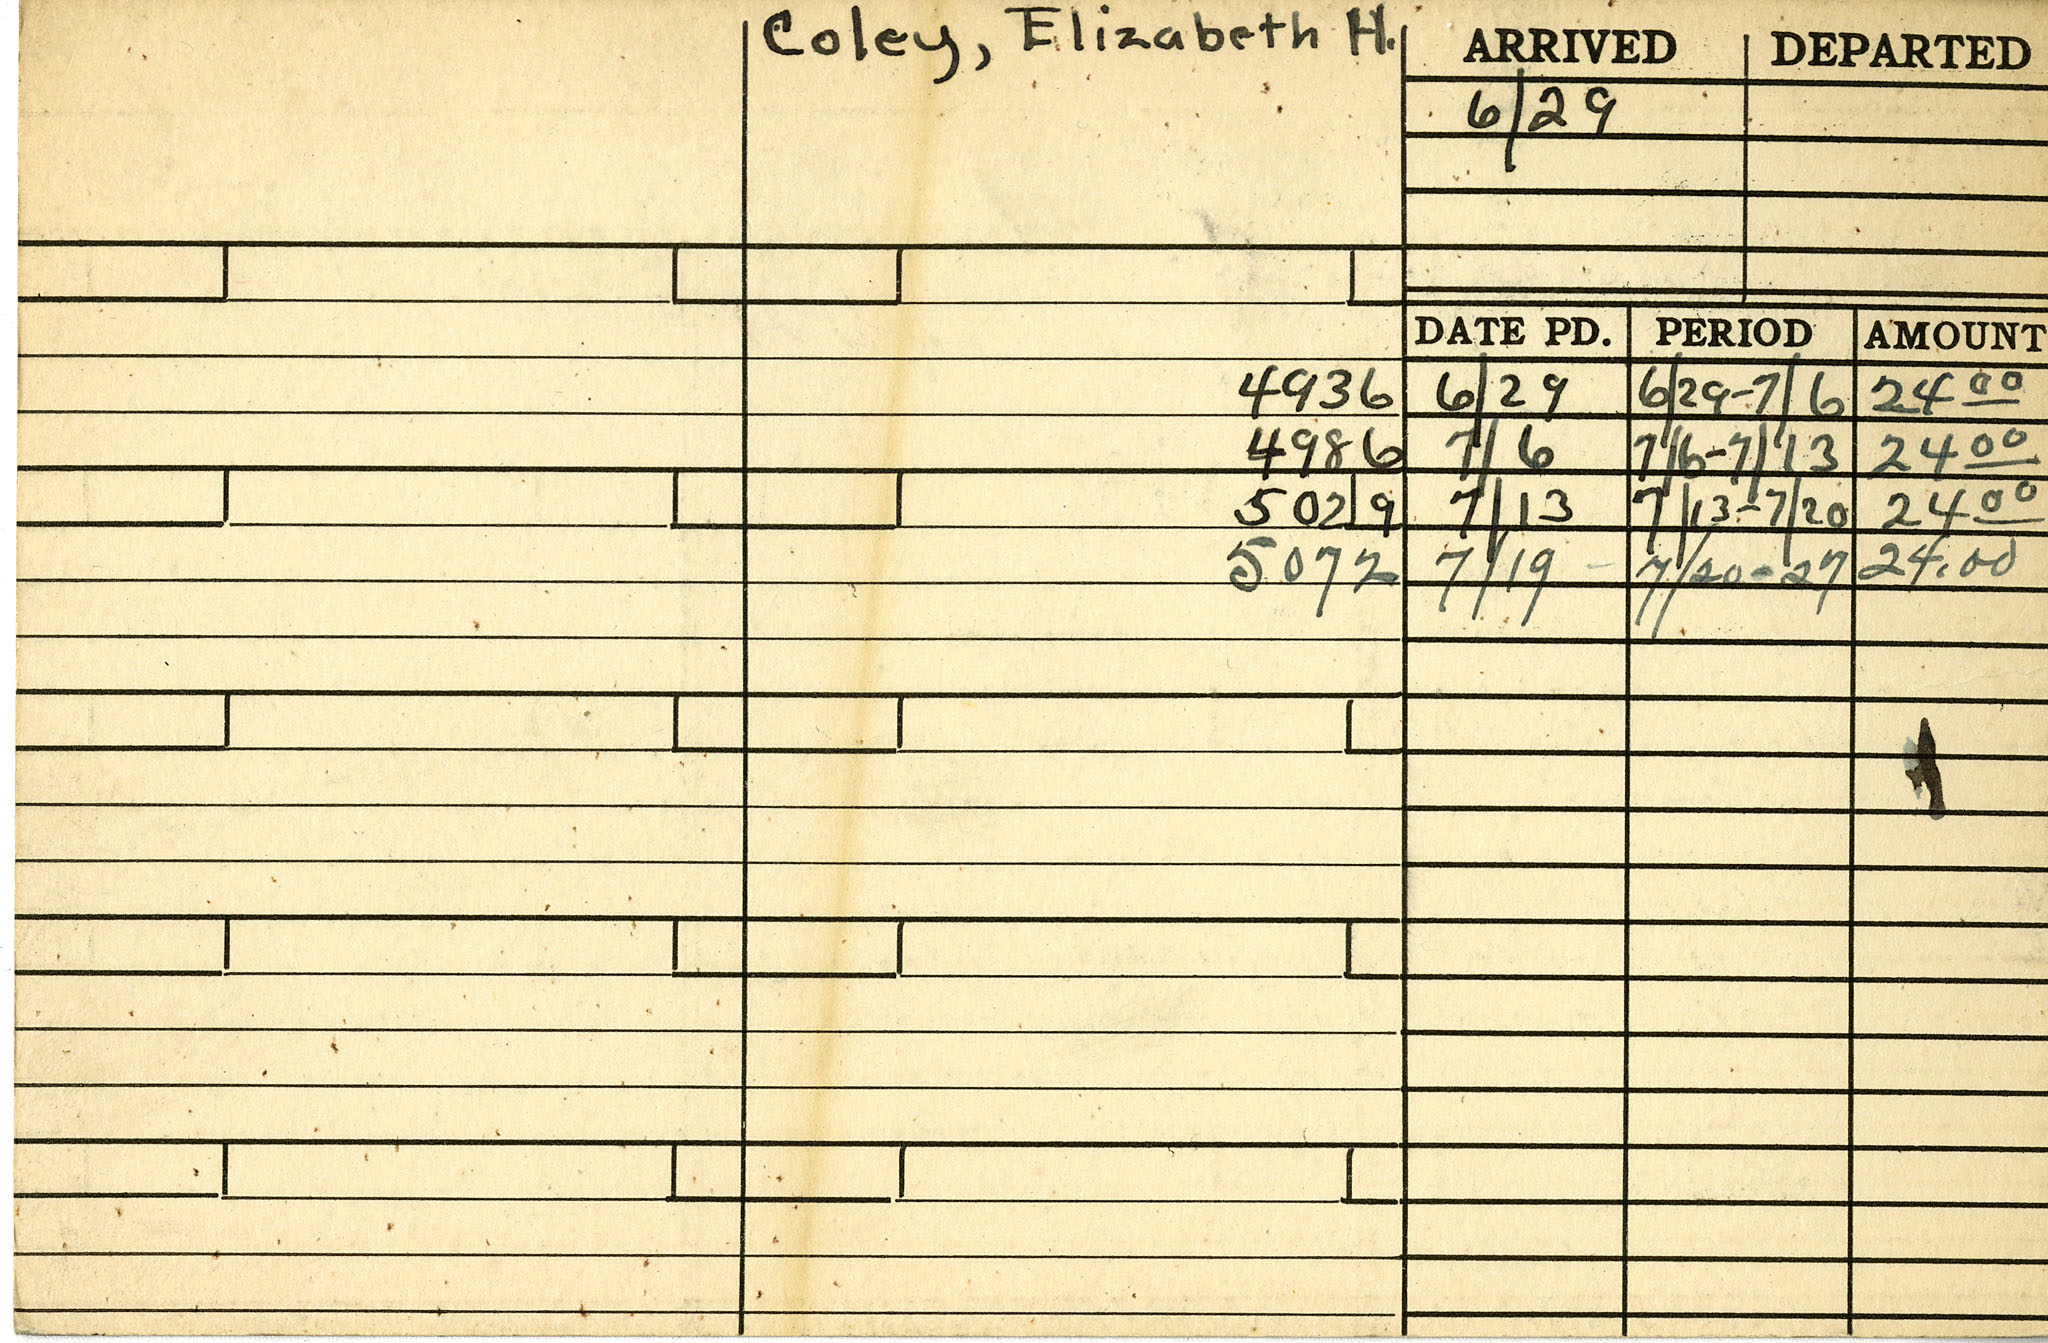 Coley, Elizabeth H.
ARRIVED DEPARTED
6/29
DATE PD. PERIOD AMOUNT
4936 6/29 6/29-7/6 24 00
4986 7/6 7/6-7/13 24 00
5029 7/13 7/13-7/20 24 00
5072 7/19 - 7/20-27 24.00